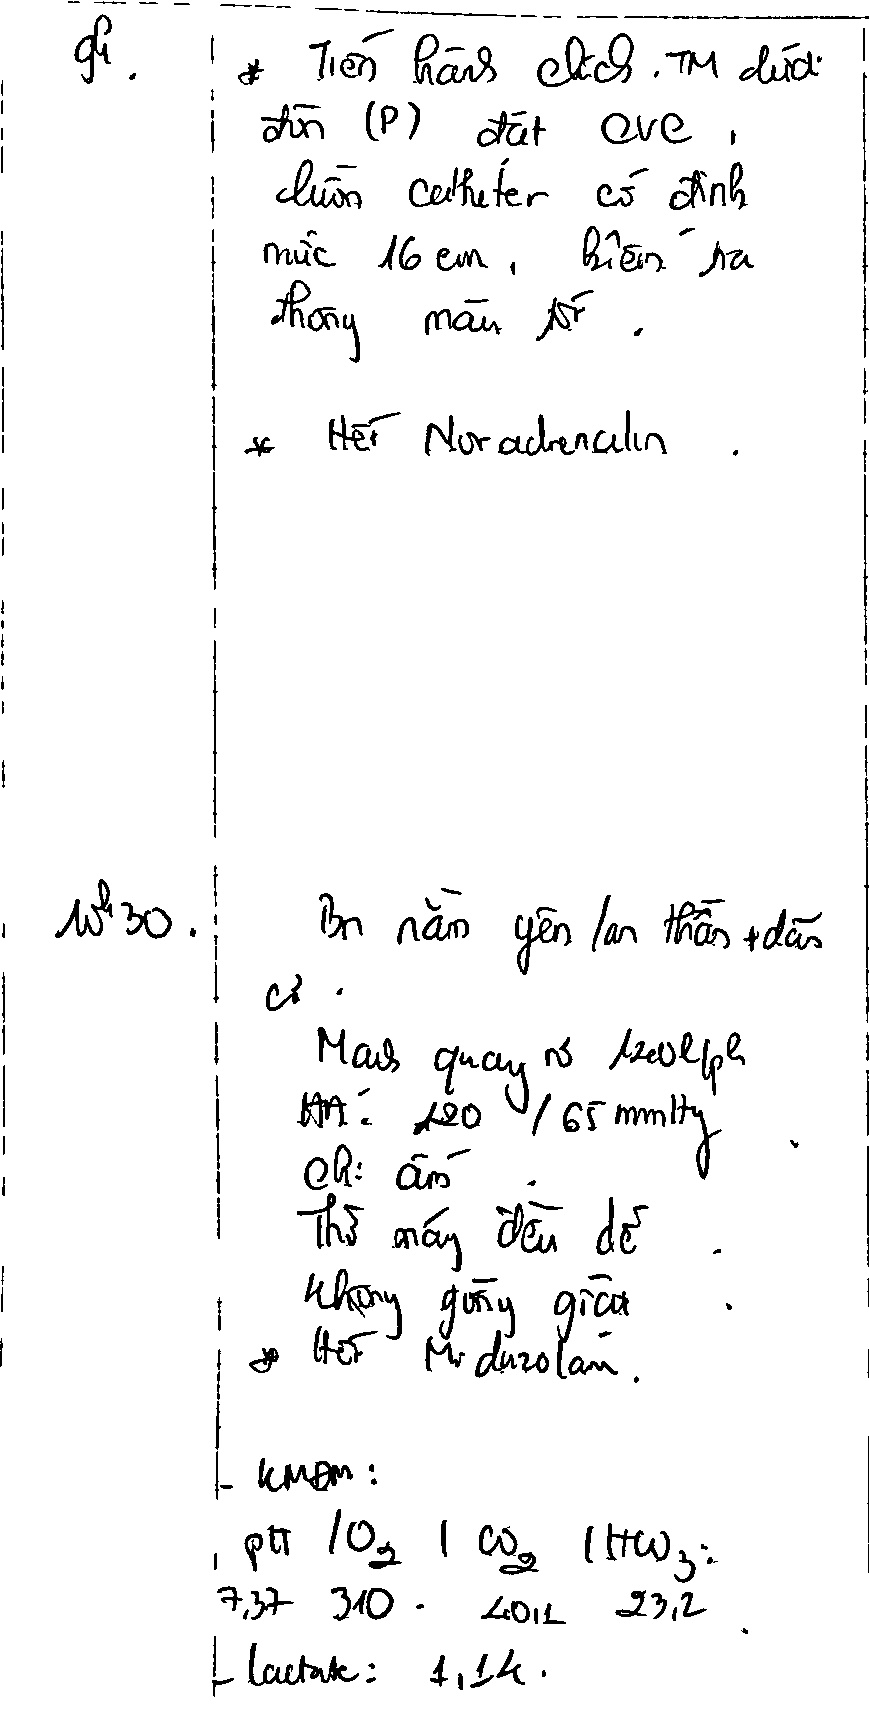 9h.
* Tiến hành chích TM dưới
đòn (P) đặt CVC,
luồn catheter cố định
mức 16 cm, kiểm tra
thông máu tốt.
* Hết Noradrenalin.
10h30.
Bn nằm yên / an thần + dãn
cơ.
Mạch quay rõ 120l/ph
HA: 120 / 65 mmHg
Chi ấm.
Thở máy đều dễ.
Không gồng giật.
* Hết Midazolam.
- KMĐM:
pH / O2 / CO2 / HCO3:
7,37 310. 40,1 23,2
- lactate: 1,14.